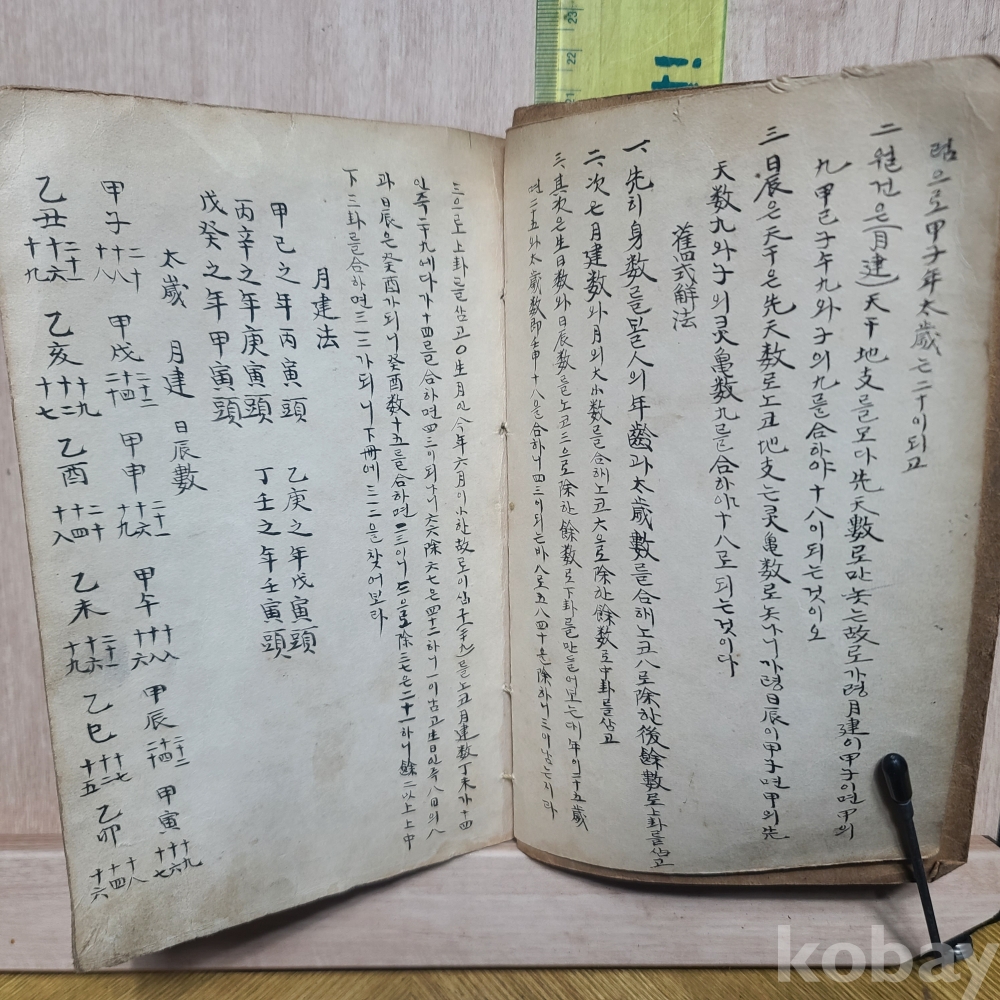 럼으로 甲子年太歲는 二十이되고
二 월건은(月建) 天干地支를 모다 先天數로만 놋는故로 가령 月建이 甲子이면 甲의
九 甲己子午九와 子의 九를 合하야 十八이되는것이오
三 日辰은 天干은 先天数로 노코 地支는 灵亀数로 놋나니 가령 日辰이 甲子면 甲의 先
天数九와 子의 灵亀数九를 合하야 十八로 되는것이다
舊式解法
一、先히 身数를 볼 人의 年齡과 太歲數를 合해노코 八로 除한後 餘數로 上卦를 삼고
二、次 七月建数와 月의 大小数를 合해노코 六으로 除한 餘数로 中卦를 삼고
三、其次은 生日数와 日辰数를 노고 三으로 除한 餘数로 下卦를 만들어보는대 年이 二十五歲
면 二五와 太歲数即 壬申十八을 合하니 四三이되는바 八로 五八四十은 除하니 三이남는지라
三으로 上卦를 삼고 生月인 今年六月이 小한故로 를 노코 月建数 丁未가 十四
인즉 二十九에다가 十四를 合하면 四三이되나니 六六除 六七은 四十二하니 一이남고 生日인즉 八日의 八
과 日辰은 癸酉가되니 癸酉数 十五를 合하면 二三이니 三으로 除 三七은 二十一하니 餘二 以上 上中
下三卦를 合하면 三一二가되니 下冊에 三一二을 찾어보라
月建法
甲己之年丙寅頭 乙庚之年戊寅頭
丙辛之年庚寅頭 丁壬之年壬寅頭
戊癸之年甲寅頭
太歲 月建 日辰數
甲子 二十 十八 十八 甲戌 二十二 十四 二十 甲申 二十一 十六 十九 甲午 十八 十八 十六 甲辰 二十二 十四 二十 甲寅 十九 十六 十七
乙丑 二十一 十六 十九 乙亥 十九 十二 十七 乙酉 二十 十四 十八 乙未 二十一 十六 十九 乙巳 十七 十二 十五 乙卯 十八 十四 十六
23
22
21
kobay